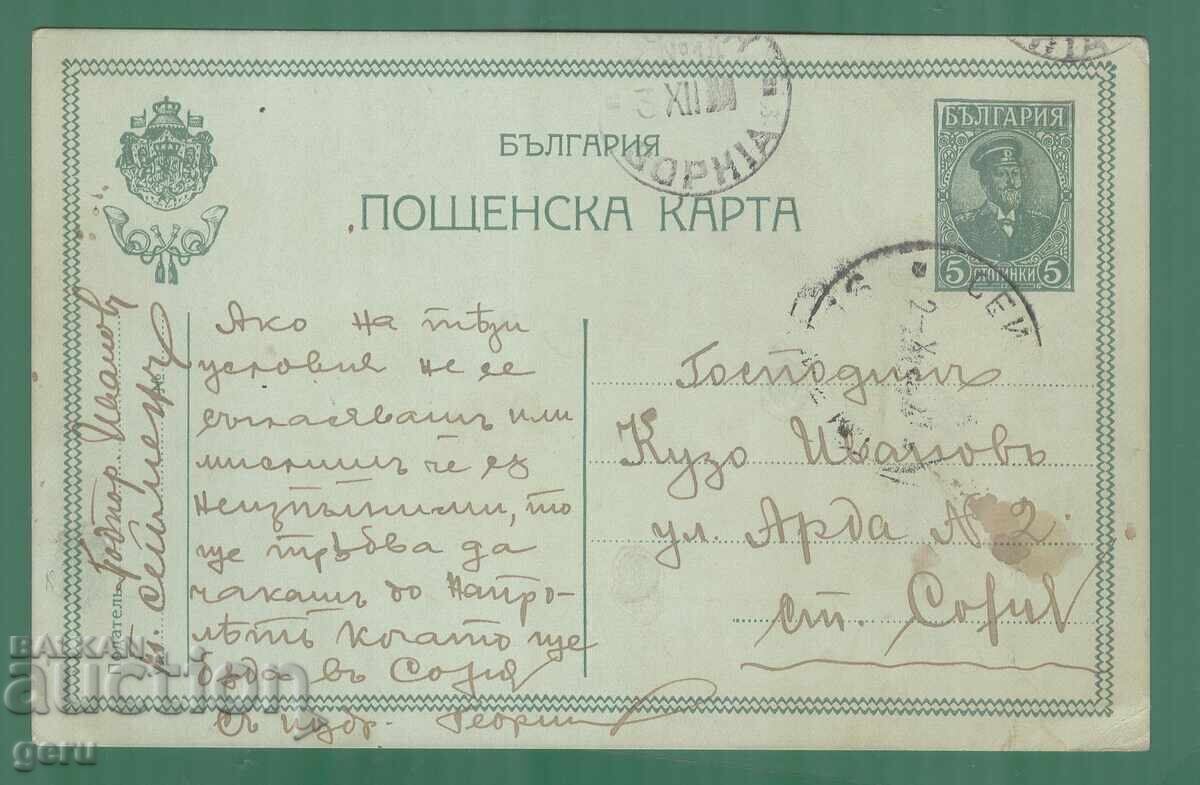 БЪЛГАРИЯ
ПОЩЕНСКА КАРТА
БЪЛГАРИЯ
5 СТОТИНКИ 5
XII
SOPHIA
СЕЙ
2-X
Ако на тѣзи
условия не се
съгласявашъ или
мислишъ че сѫ
неизпълними, то
ще трѣбва да
чакашъ до Напро-
лѣтъ когато ще
бѫда въ София
Съ поздр. Георги
Господинъ
Кузо Ивановъ
ул. Арда № 2
ст. София
Подателъ
Ивановъ
с. Сеймень
BALKAN
auction
geru